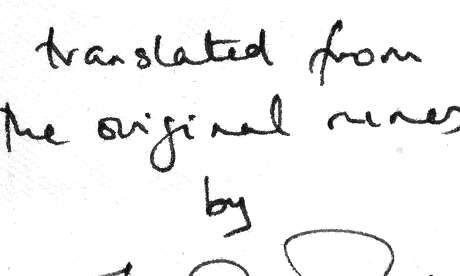 translated from
the original runes
by